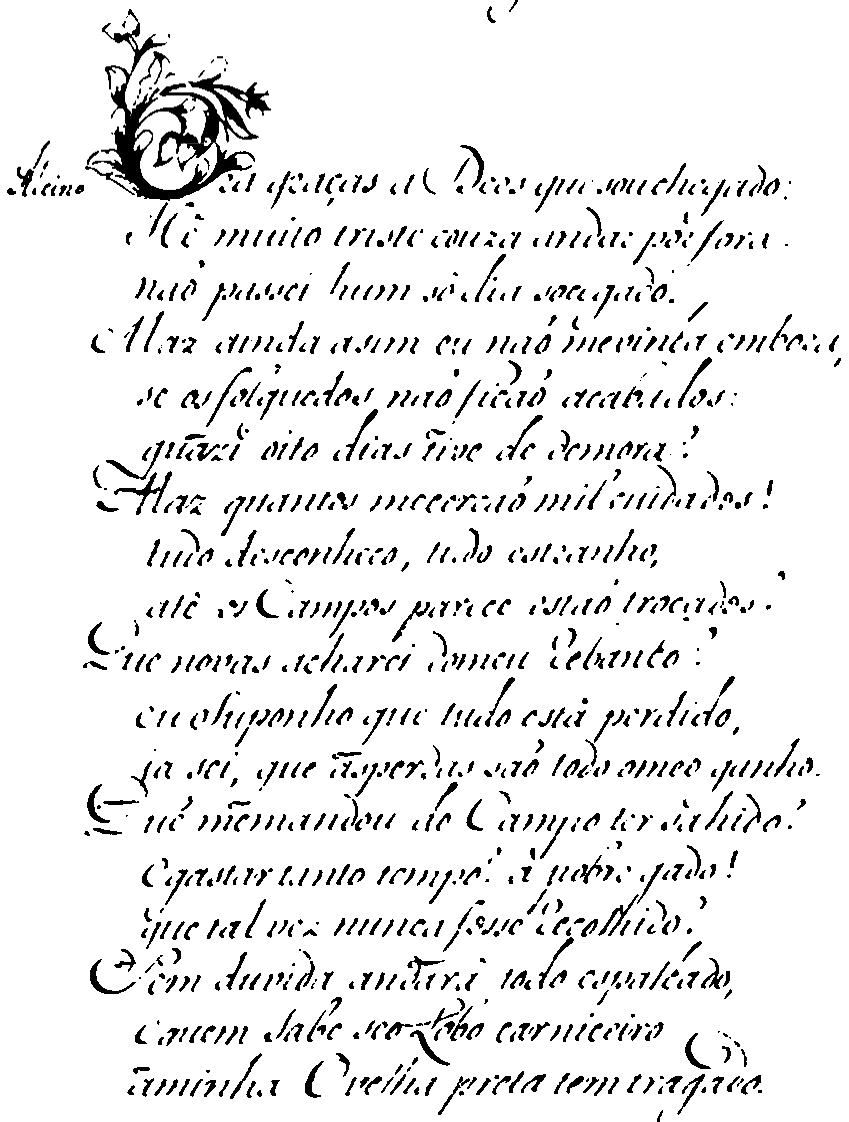 Alcino Ora graças a Deos que sou chegado:
Hê muito triste couza andar pôr fora.
naõ passei hum sô dia socegado.
Maz ainda asim eu naõ me vinha embora,
se os folguedos naõ ficaõ acabados:
quazi oito dias tive de demora?
Maz quantos me cercaõ mil cuidados!
tudo desconheco, tudo estranho,
atê os Campos parece estaõ trocados?
Que novas acharei do meu Rebanho?
eu suponho que tudo està perdido,
ja sei, que as perdas saõ todo o meo ganho.
Que me mandou do Campo ter sahido?
e gastar tanto tempo? à pobre gado!
que tal vez nunca fosse Recolhido?
Sem duvida andarà todo espalhado,
e quem sabe se o Lobo carniceiro
a minha Ovelha preta tem tragado.